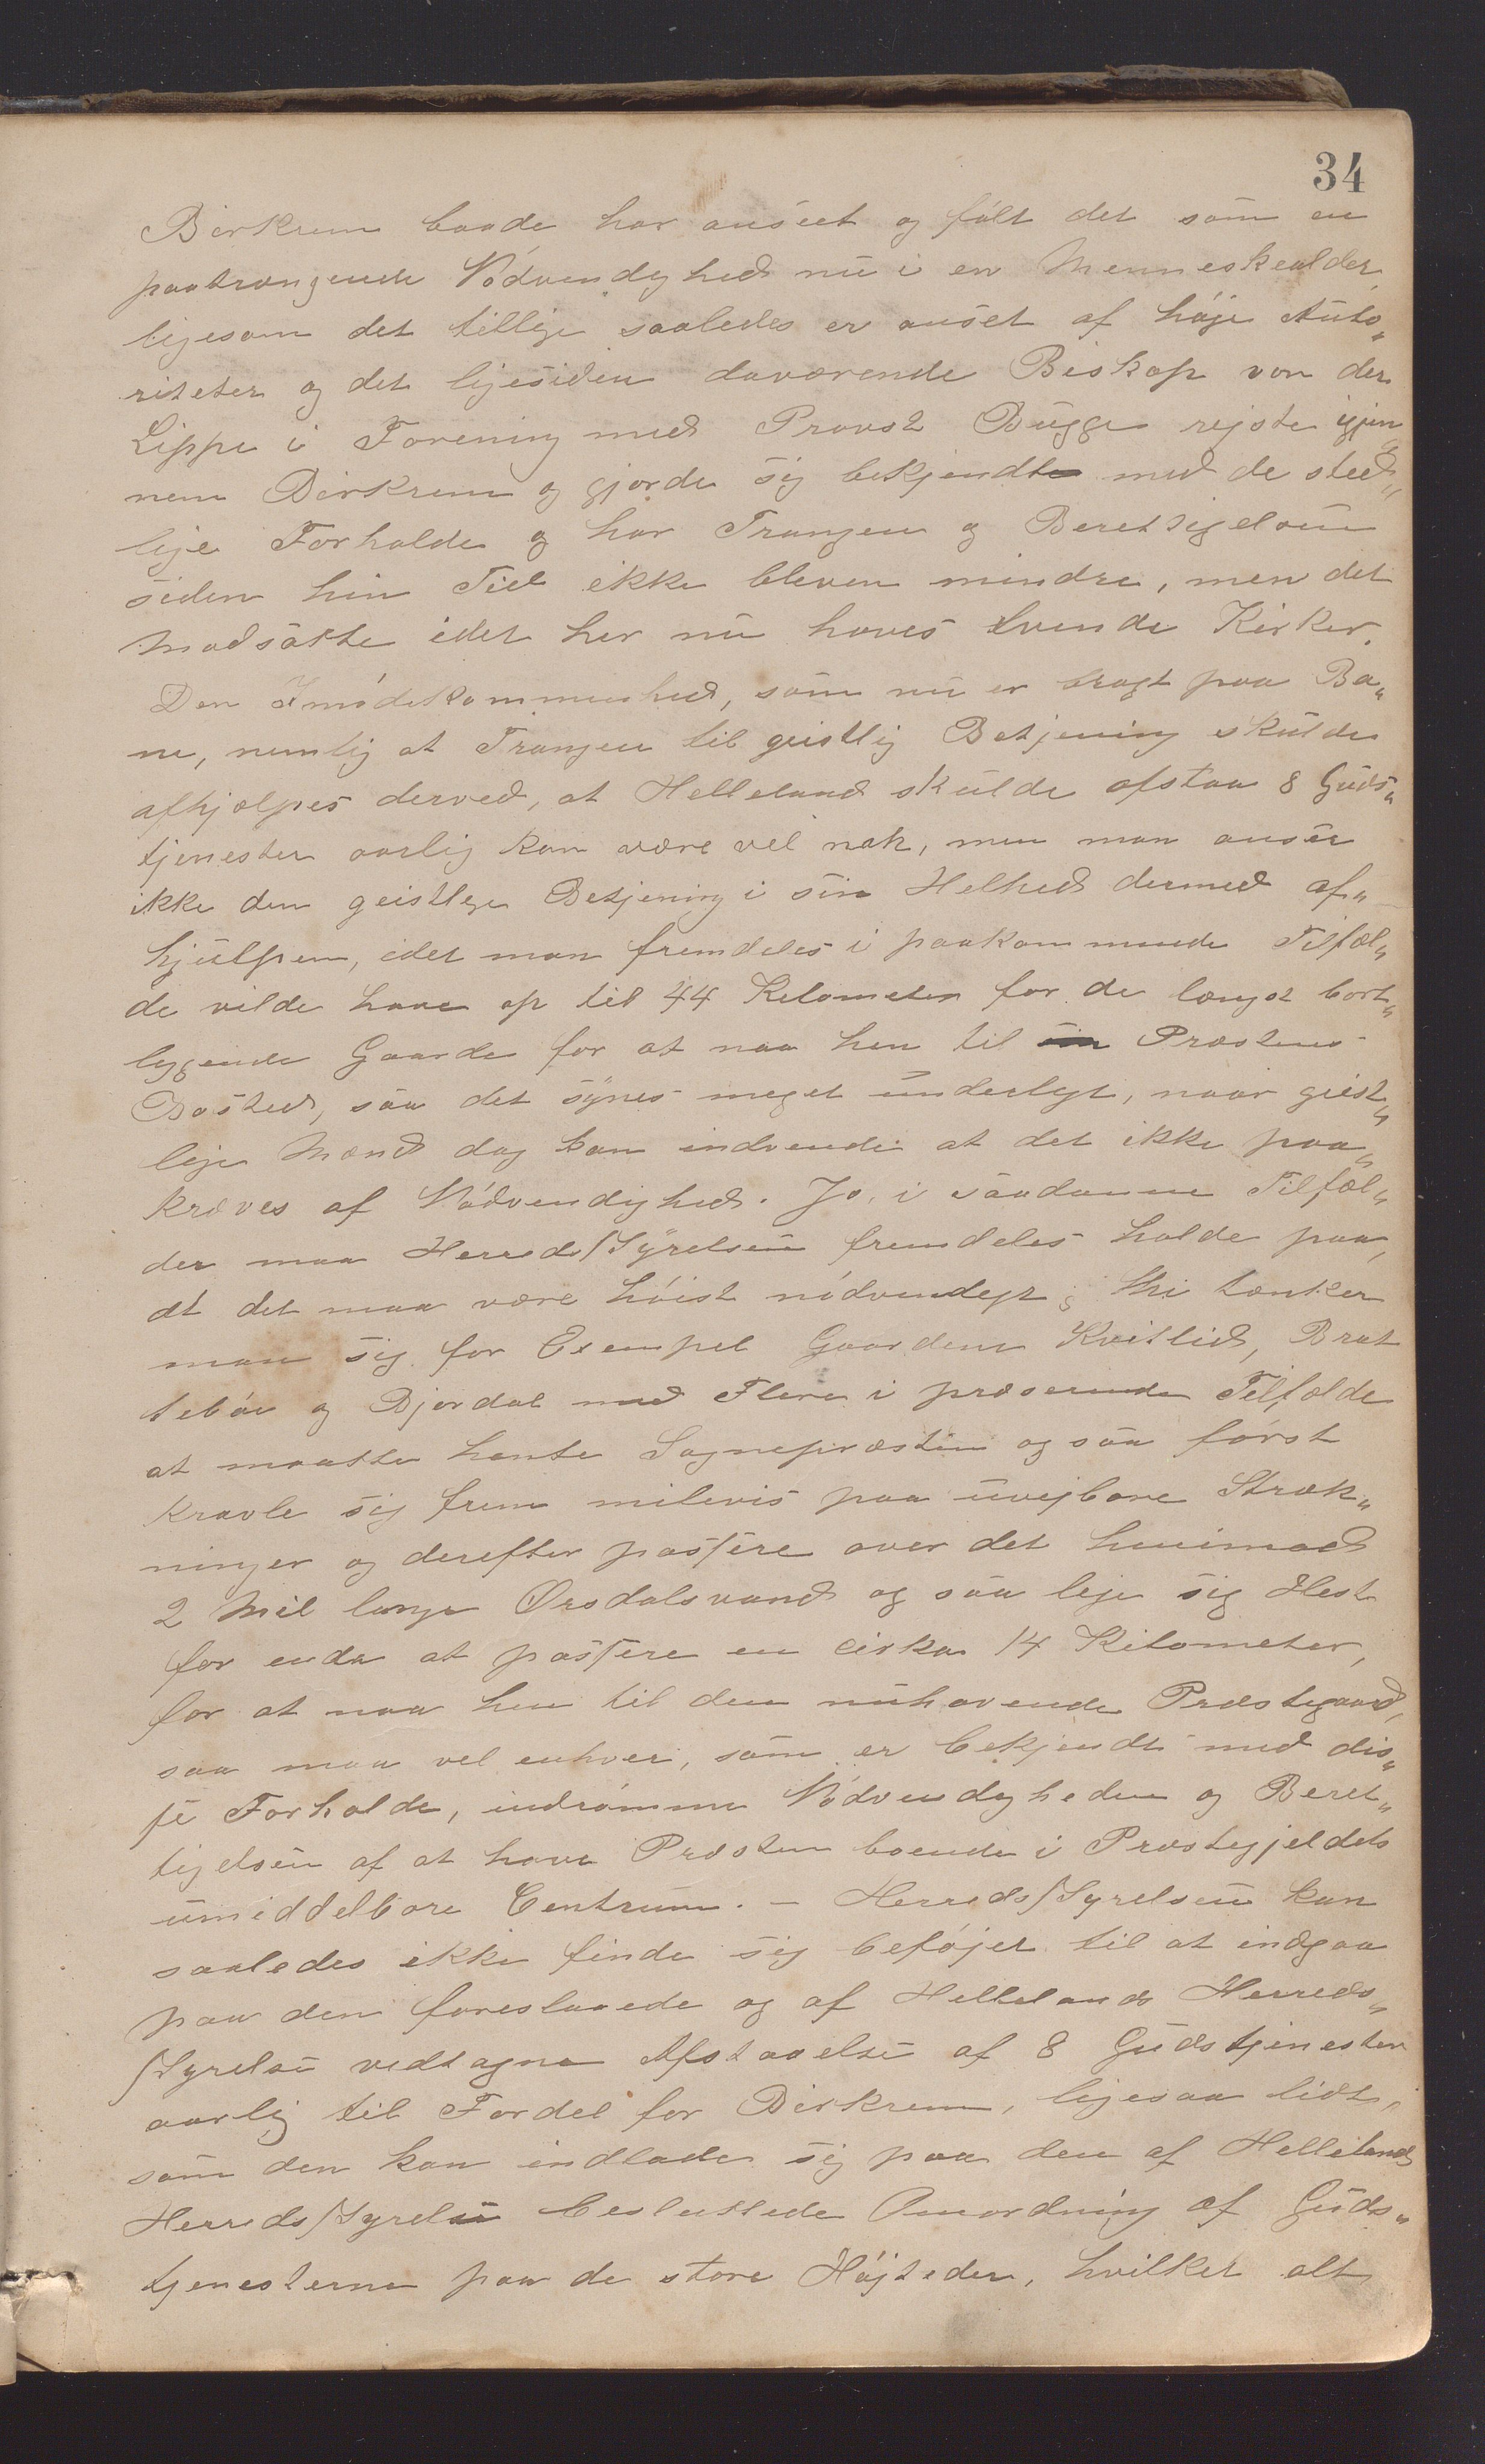 34
Birkrem baade har anseet og følt det som en
paatrængende Nødvendighed nu i en Menneskealder,
ligesom det tillige saaledes er anset af høje Auto„
riteter og det ligesiden daværende Biskop von der
Lippe i Forening med Provst Bugge rejste igjen„
nem Birkrem og gjorde sig bekjendt med de sted„
lige Forholde og har Trangen og Berettigelsen
siden hin Tid ikke bleven mindre, men det
modsatte idet her nu haves tvende Kirker.
Den Imødekommenhed, som nu er bragt paa Ba„
ne, nemlig at Trangen til geistlig Betjening skulde
afhjælpes derved, at Helleland skulde afstaa 8 Guds„
tjenester aarlig kan være vel nok, men man anser
ikke den geistlige Betjening i sin Helhed dermed af„
hjulpen, idet man fremdeles i paakommende Tilfæl„
de vilde have op til 44 Kilometer for de længst bort„
liggende Gaarde for at naa hen til Præstens
Bosted, saa det synes meget underligt, naar geist„
lige Mænd dog kan indvende at det ikke paa„
kræves af Nødvendighed. Jo, i saadanne Tilfæl„
der maa Herredsstyrelsen fremdeles holde paa,
at det maa være høist nødvendigt; thi tænker
man sig for Exempel Gaardene Kvitlid, Brat
tebøe og Bjordal med Flere i præserende Tilfælde
at maatte hente Sognepræsten og saa først
kravle sig frem milevis paa uvejbare Stræk„
ninger og derefter passere over det henimod
2 Mil lange Ørsdalsvand og saa leje sig Hest
for enda at passere en cirka 14 Kilometer,
for at naa hen til den nuhavende Præstegaard,
saa maa vel enhver, som er bekjendt med dis„
se Forholde, indrømme Nødvendigheden og Beret„
tigelsen af at have Præsten boende i Præstegjeldets
umiddelbare Centrum. – Herredsstyrelsen kan
saaledes ikke finde sig beføjet til at indgaa
paa den foreslaaede og af Hellelands Herreds„
styrelse vedtagne Afstaaelse af 8 Gudstjenester
aarlig til Fordel for Birkrem, ligesaa lidt,
som den kan indlade sig paa den af Hellelands
Herredsstyrelse besluttede Omordning af Guds„
tjenesterne paa de store Højtider, hvilket alt